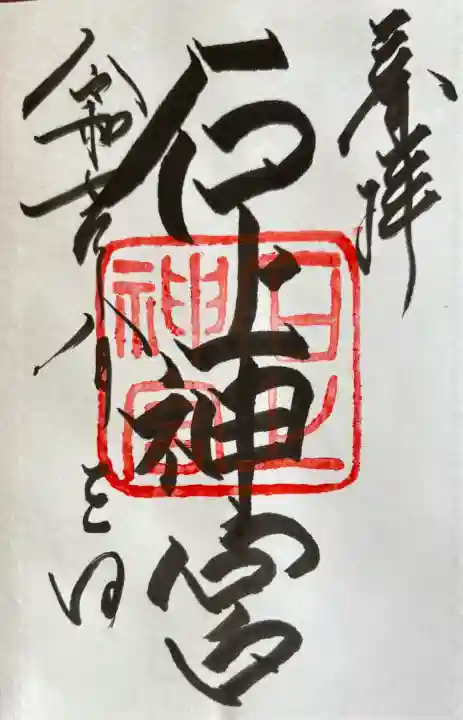 奉拝
石上神宮
石上神宮
令和 八月三日